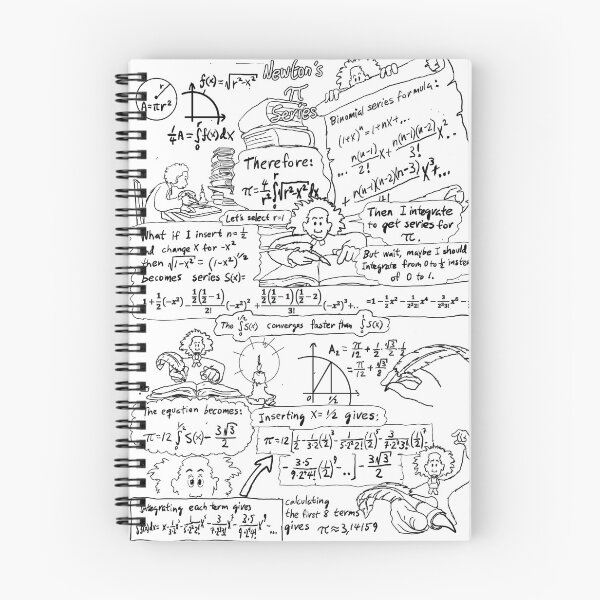 Newton's
π
Series
r
A=πr²
f(x)=√r²-x²
r
¼A=∫f(x)dx
0
Binomial series formola:
(1+x)ⁿ=1+nx+...
... n(n-1)/2! x + n(n-1)(n-2)/3! x²..
+ n(n-1)(n-2)(n-3)/4! x³+...
Therefore:
π=4/r² ∫₀ʳ √r²-x² dx
Let's select r=1
Then I integrate
to get series for
π.
What if I insert n=½
and change x for -x²
then √1-x² = (1-x²)^1/2
becomes series S(x)=
But wait, maybe I should
Integrate from 0 to ½ instead
of 0 to 1.
1+½(-x²)-½(½-1)/2!(-x²)²+½(½-1)(½-2)/3!(-x²)³+.. =1-½x²-
The ∫₀^1/2 S(x) converges faster than ∫₀¹ S(x)
A₂=π/12+½·√3/2·½
=π/12+√3/8
0 1/2 1
The equation becomes:
π=12∫₀^½ S(x)-3√3/2
Inserting x=1/2 gives:
π=12[½-1/3·2(½)³-1/5·2²2!(½)⁵-3/7·2³3!(½)⁷
-3·5/9·2⁴4!(½)⁹-..]-3√3/2
Integrating each term gives
calculating
the first 8 terms
gives π≈3,14159